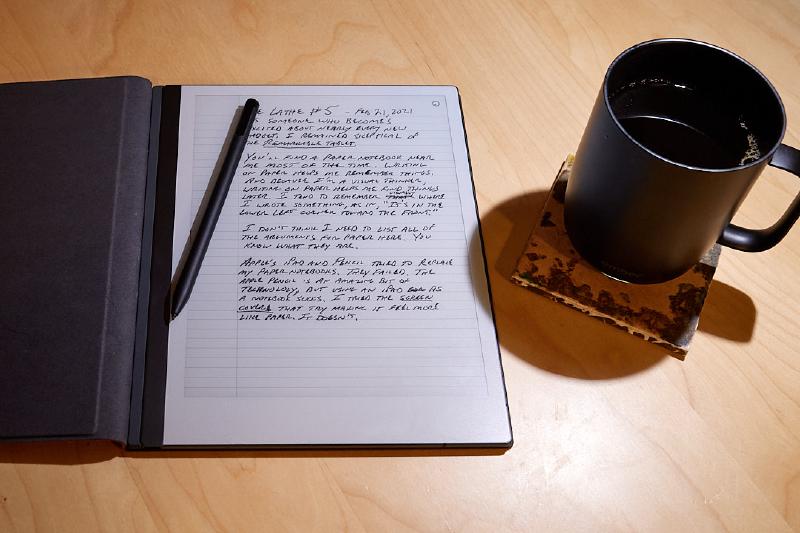 E LATHE #5 - FEB 21, 2021
S SOMEONE WHO BECOMES
CITED ABOUT NEARLY EVERY NEW
GADGET, I REMAINED SKEPTICAL OF
THE REMARKABLE TABLET.
YOU'LL FIND A PAPER NOTEBOOK NEAR
ME MOST OF THE TIME. WRITING
ON PAPER HELPS ME REMEMBER THINGS.
AND BECAUSE I'M A VISUAL THINKER,
WRITING ON PAPER HELPS ME FIND THINGS
LATER. I TEND TO REMEMBER WHERE
I WROTE SOMETHING, AS IN, "IT'S IN THE
LOWER LEFT CORNER TOWARD THE FRONT."
I DON'T THINK I NEED TO LIST ALL OF
THE ARGUMENTS FOR PAPER HERE. YOU
KNOW WHAT THEY ARE.
APPLE'S IPAD AND PENCIL TRIED TO REPLACE
MY PAPER NOTEBOOKS. THEY FAILED. THE
APPLE PENCIL IS AT AMAZING BIT OF
TECHNOLOGY, BUT USING AN IPAD AS
A NOTEBOOK SUCKS. I TRIED THE SCREEN
COVERS THAT TRY MAKING IT FEEL MORE
LIKE PAPER. IT DOESN'T.